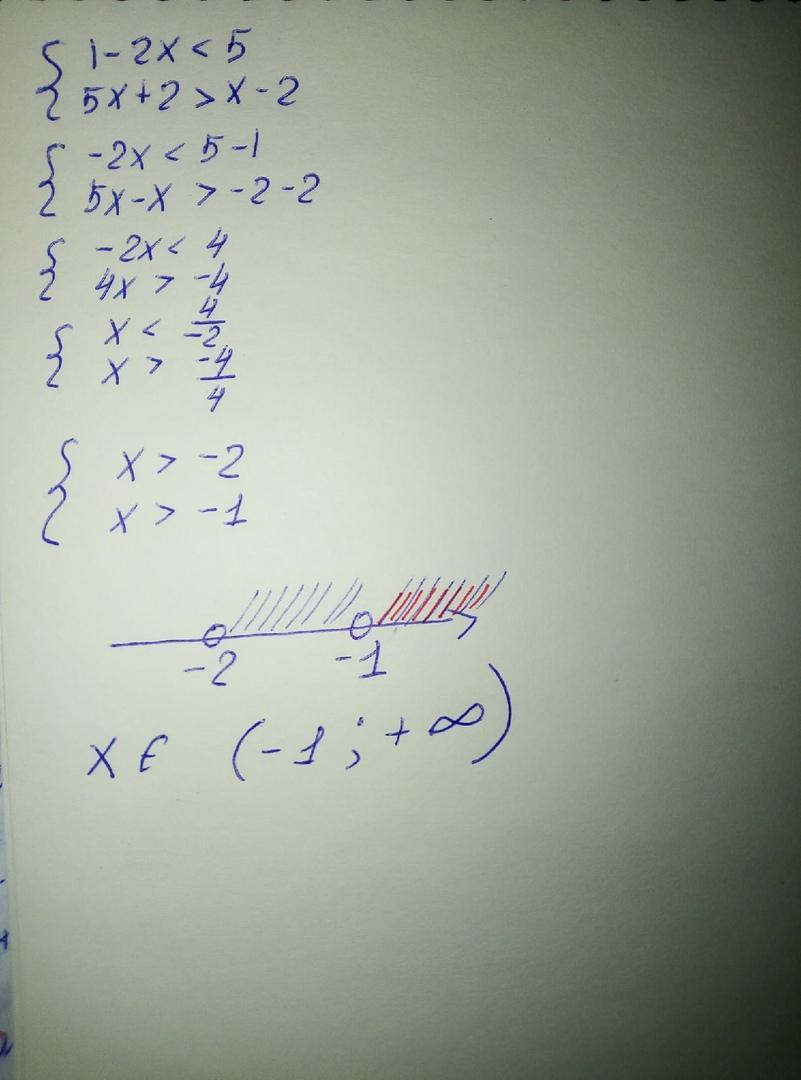 1-2x < 5
5x+2 > x-2
-2x < 5-1
5x-x > -2-2
-2x < 4
4x > -4
x < 4/-2
x > -4/4
x > -2
x > -1
-2 -1
x ∈ (-1; +∞)